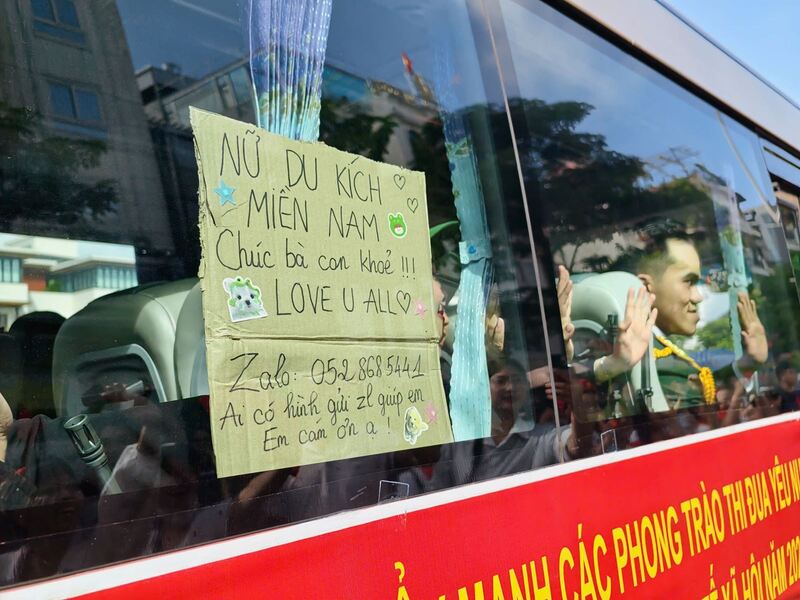 NỮ DU KÍCH
MIỀN NAM
Chúc bà con khoẻ !!!
LOVE U ALL
Zalo: 052 868 5441
Ai có hình gửi zl giúp em
Em cám ơn ạ !
MẠNH CÁC PHONG TRÀO THI ĐUA YÊU
XÃ HỘI NĂM